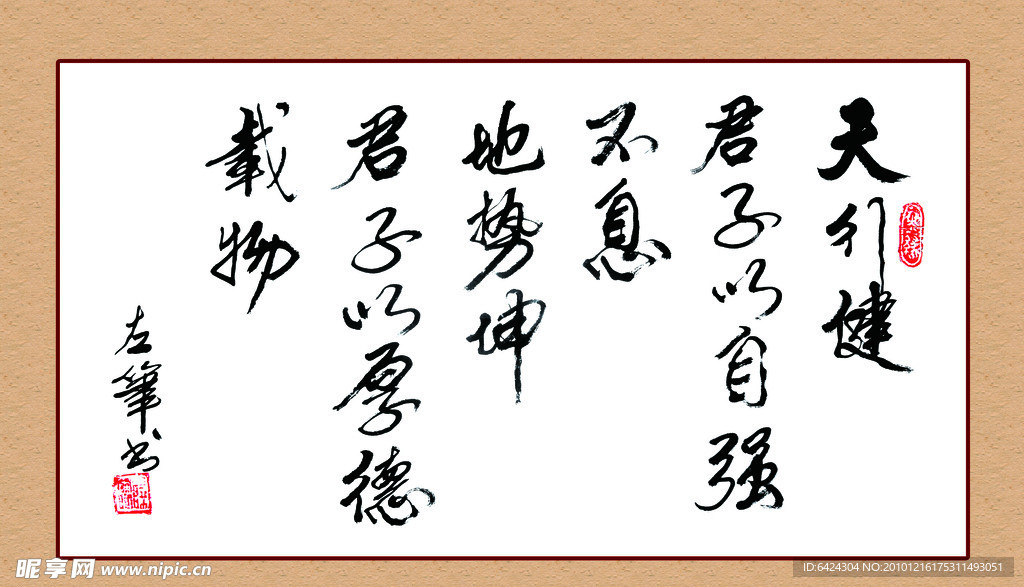 天行健
君子以自强
不息
地势坤
君子以厚德
載物
左筆书
昵享网 www.nipic.cn
ID:6424304 NO:20101216175311493051